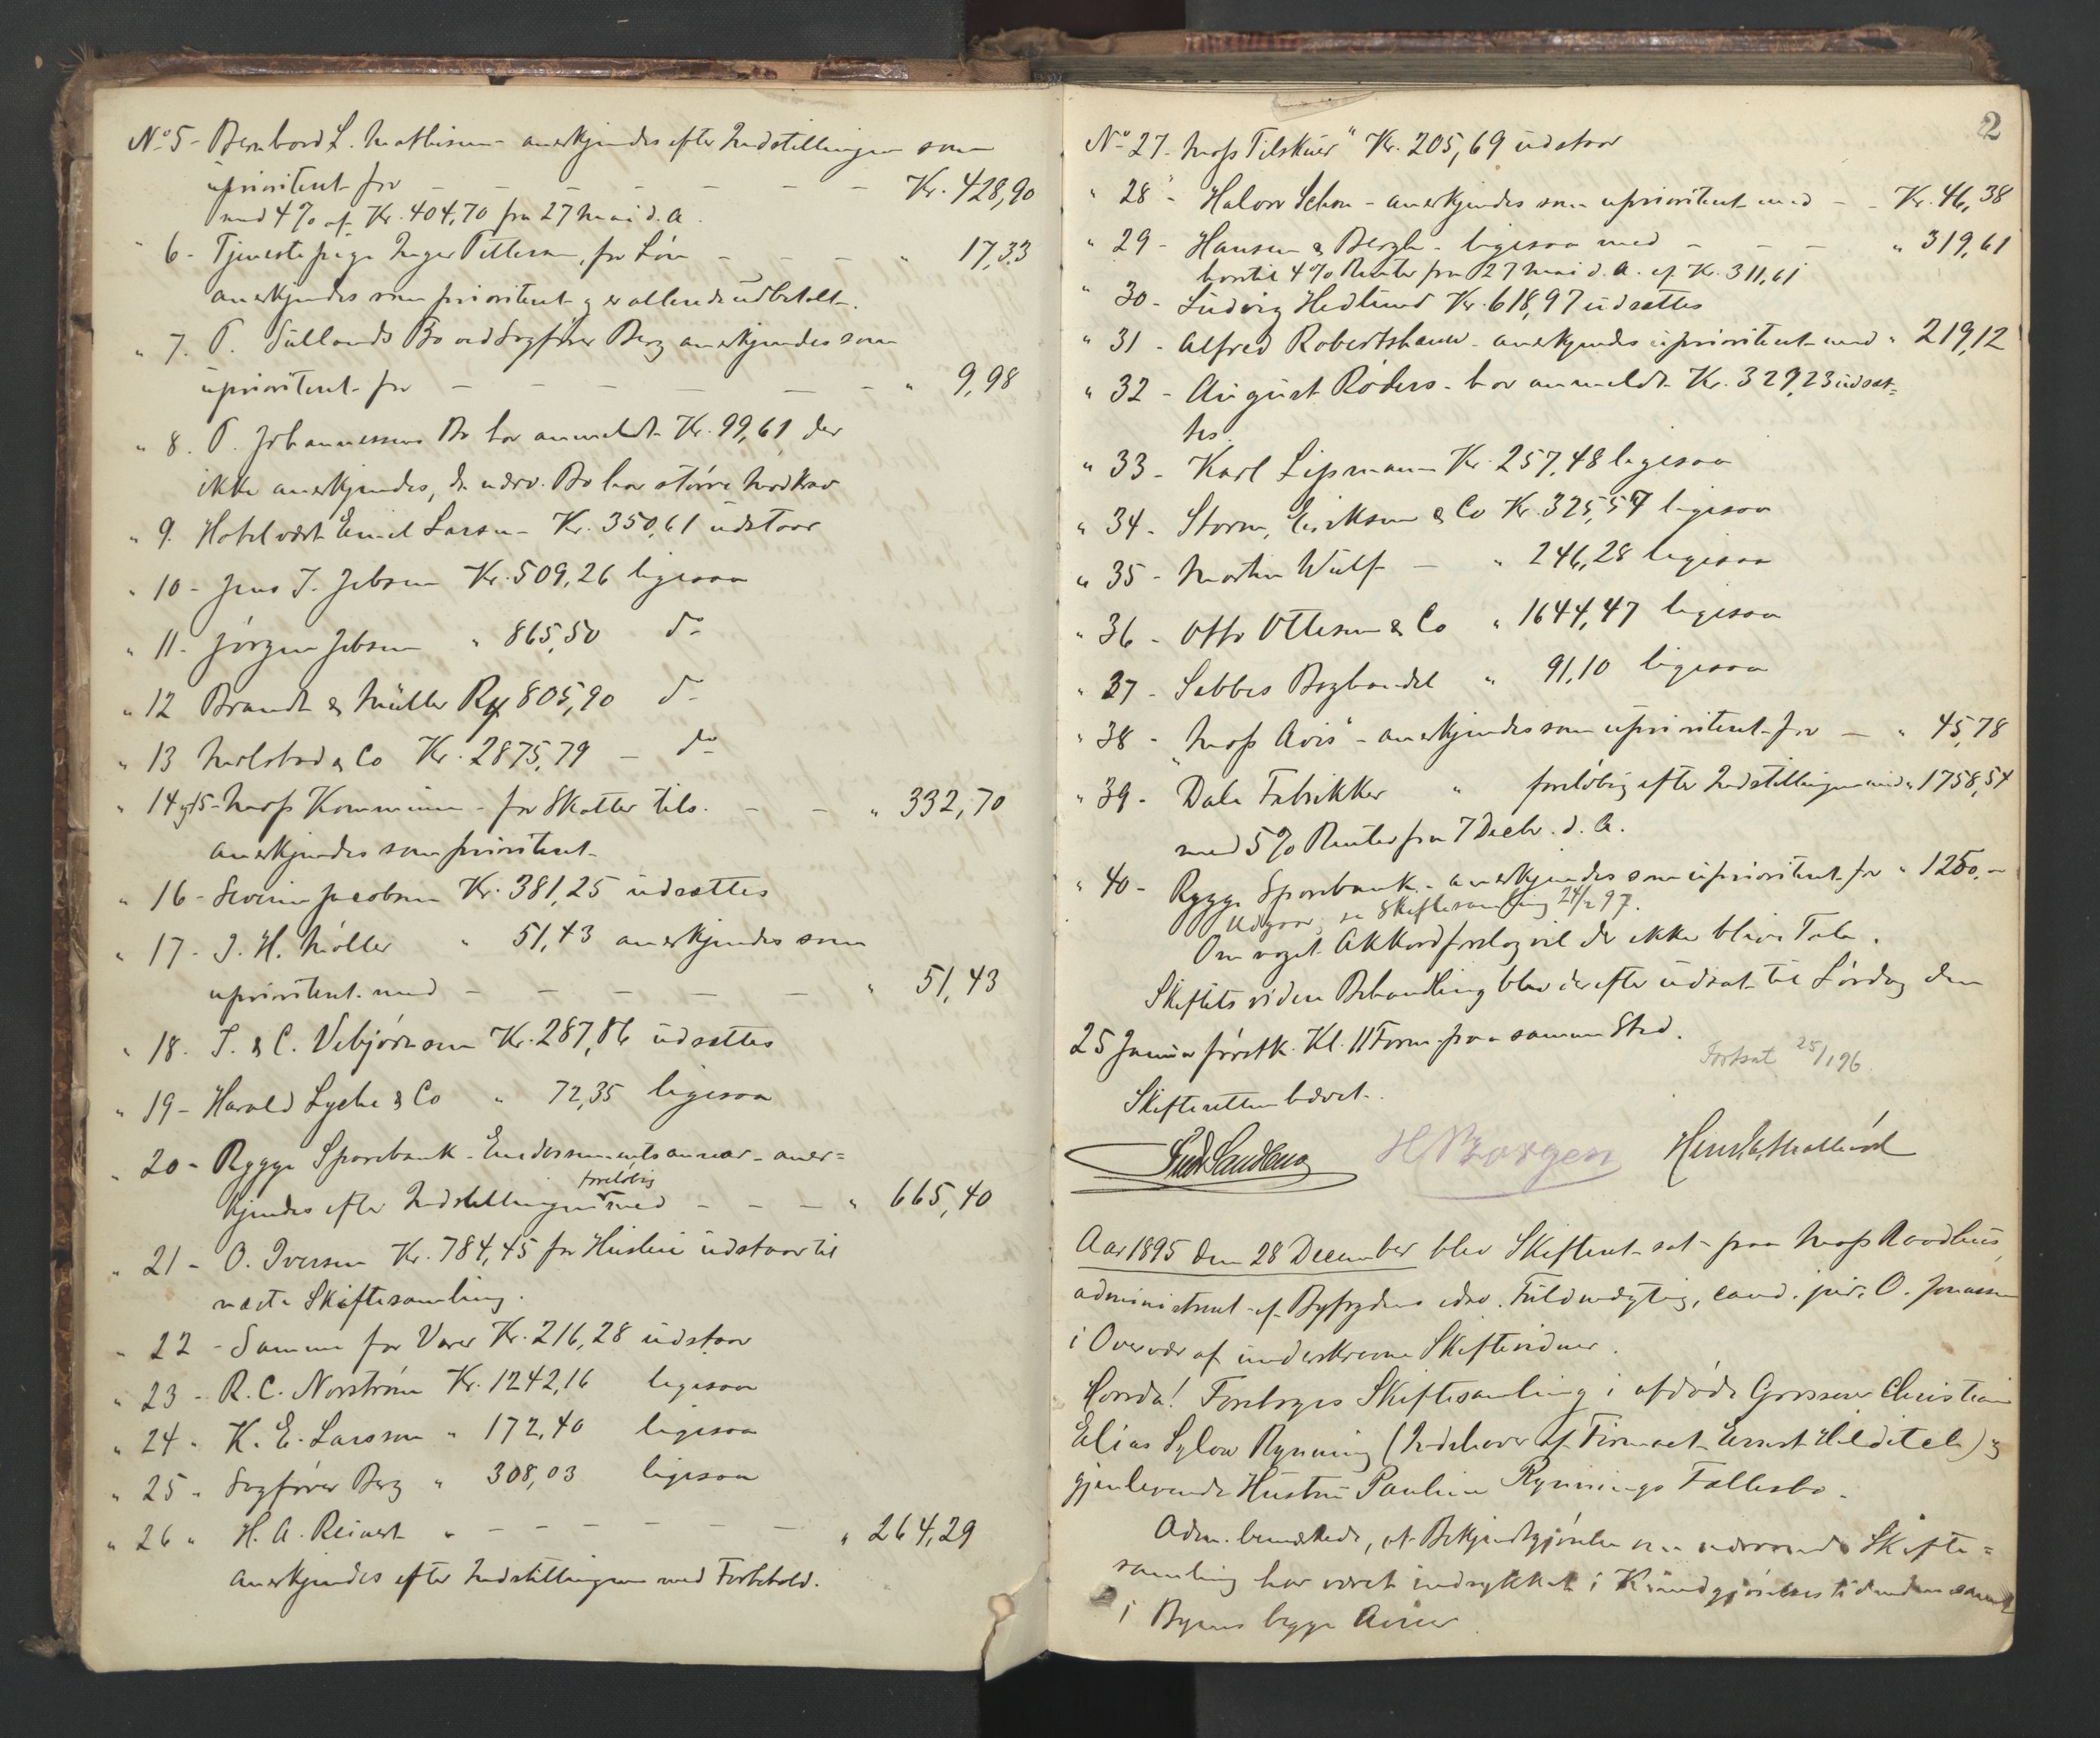 No 5 - Bernhard L. Mathisen - anerkjendes efter Indstillingen som
uprioriteret for - - - - - - - Kr. 428,90
med 4% af Kr. 404,70 fra 27 Mai d. A.
" 6 - Tjenestepige Inger Pettersen, for Løn - - - - " 17,33
anerkjendes som prioriteret og er allerede udbetalt.
" 7. P. Süllands Bo ved Sagfører Berg anerkjendes som
uprioriteret for - - - - - - " 9,98
" 8. P. Johannessens Bo har anmeldt Kr. 99,61 der
ikke anerkjendes, da nærv. Bo har større Modkrav
" 9. Hotelvært Emil Larsen - Kr. 350,61 udstaar
" 10 - Jens J. Jebsen Kr. 509,26 ligesaa
" 11 - Jørgen Jebsen " 865,50 do
" 12 Brandt & Müller 805,90 do
" 13 Melstad & Co Kr. 2875,79 - do
" 14 og 15 - Moss Kommune - for Skatter tils. - - " 332,70
anerkjendes som prioriteret -
" 16 - Severin Jacobsen Kr. 381,25 udsættes
" 17 - J. H. Møller " 51,43 anerkjendes som
uprioriteret med - - - - - " 51,43
" 18. T. & C. Vebjørnsen Kr. 287,86 udsættes
" 19 - Harald Lyche & Co " 72,35 ligesaa
" 20 - Rygge Sparebank - Endossementsansvar - aner=
foreløbig
kjendes efter Indstillingen med - - - " 665,40
" 21 - O. Iversen Kr. 784,45 for Husleie udstaar til
næste Skiftesamling.
" 22 - Samme for Varer Kr. 216,28 udstaar
" 23 - R. C. Norstrøm Kr. 1242,16 ligesaa
" 24 " K. E. Larsson " 172,40 ligesaa
" 25 " Sagfører Berg " 308,03 ligesaa
" 26 " H. A. Reinert " - - - - - - " 264,29
anerkjendes efter Indstillingen med Forbehold.
2
No 27 - Moss Tilskuer" Kr. 205,69 udstaar
" 28 - Halvor Schou - anerkjendes som uprioriteret med - - Kr. 46,38
" 29 - Hansen & Bergh - ligesaa med - - - " 319,61
hvortil 4% Renter fra 27 Mai d. A. af Kr. 311,61
" 30 - Ludvig Hedlund Kr. 618,97 udsættes
" 31 - Alfred Robertshaw - anerkjendes uprioriteret med " 219,12
" 32 - August Röders - har anmeldt Kr. 329,23 udsæt=
tes.
" 33 - Karl Lipmann Kr. 257,48 ligesaa
" 34 - Storm, Eriksen & Co Kr. 325,57 ligesaa
" 35 - Martin Wulf - " 246,28 ligesaa
" 36 - Otto Ottesen & Co " 1644,47 ligesaa
" 37 - Sebbes Boghandel " 91,10 ligesaa
" 38 - "Moss Avis" - anerkjendes som uprioriteret for - " 45,78
" 39 - Dale Fabrikker " foreløbig efter Indstillingen med " 1758,54
med 5% Renter fra 7 Decbr. d. A.
" 40 - Rygge Sparebank - anerkjendes som uprioriteret for " 1250,-
Udgaar, se Skiftesamling 24/2 97.
Om noget Akkordforslag vil der ikke blive Tale.
Skiftets videre Behandling blev derefter udsat til Lørdag den
25 Januar førstk. Kl. 11 Form. paa samme Sted.
Fortsat 25/1 96
Skifteretten hævet.
Fredr Sandberg H Borgen
Aar 1895 den 28 December blev Skifteret sat paa Moss Raadhus,
administreret af Byfogdens edsv. Fuldmægtig, cand. jur. O. Jonassen
i Overvær af underskrevne Skiftevidner.
Hvorda! Foretoges Skiftesamling i afdøde Grosserer Christian
Elias Sylow Rynning (Indehaver af Firmaet Ernst Hilditch) og
gjenlevende Hustru Pauline Rynnings Fællesbo.
Adm. bemærkede, at Bekjendtgjørelse om nærværende Skifte=
samling har været indrykket i Kundgjørelsestidenden samt
i Byens begge Aviser